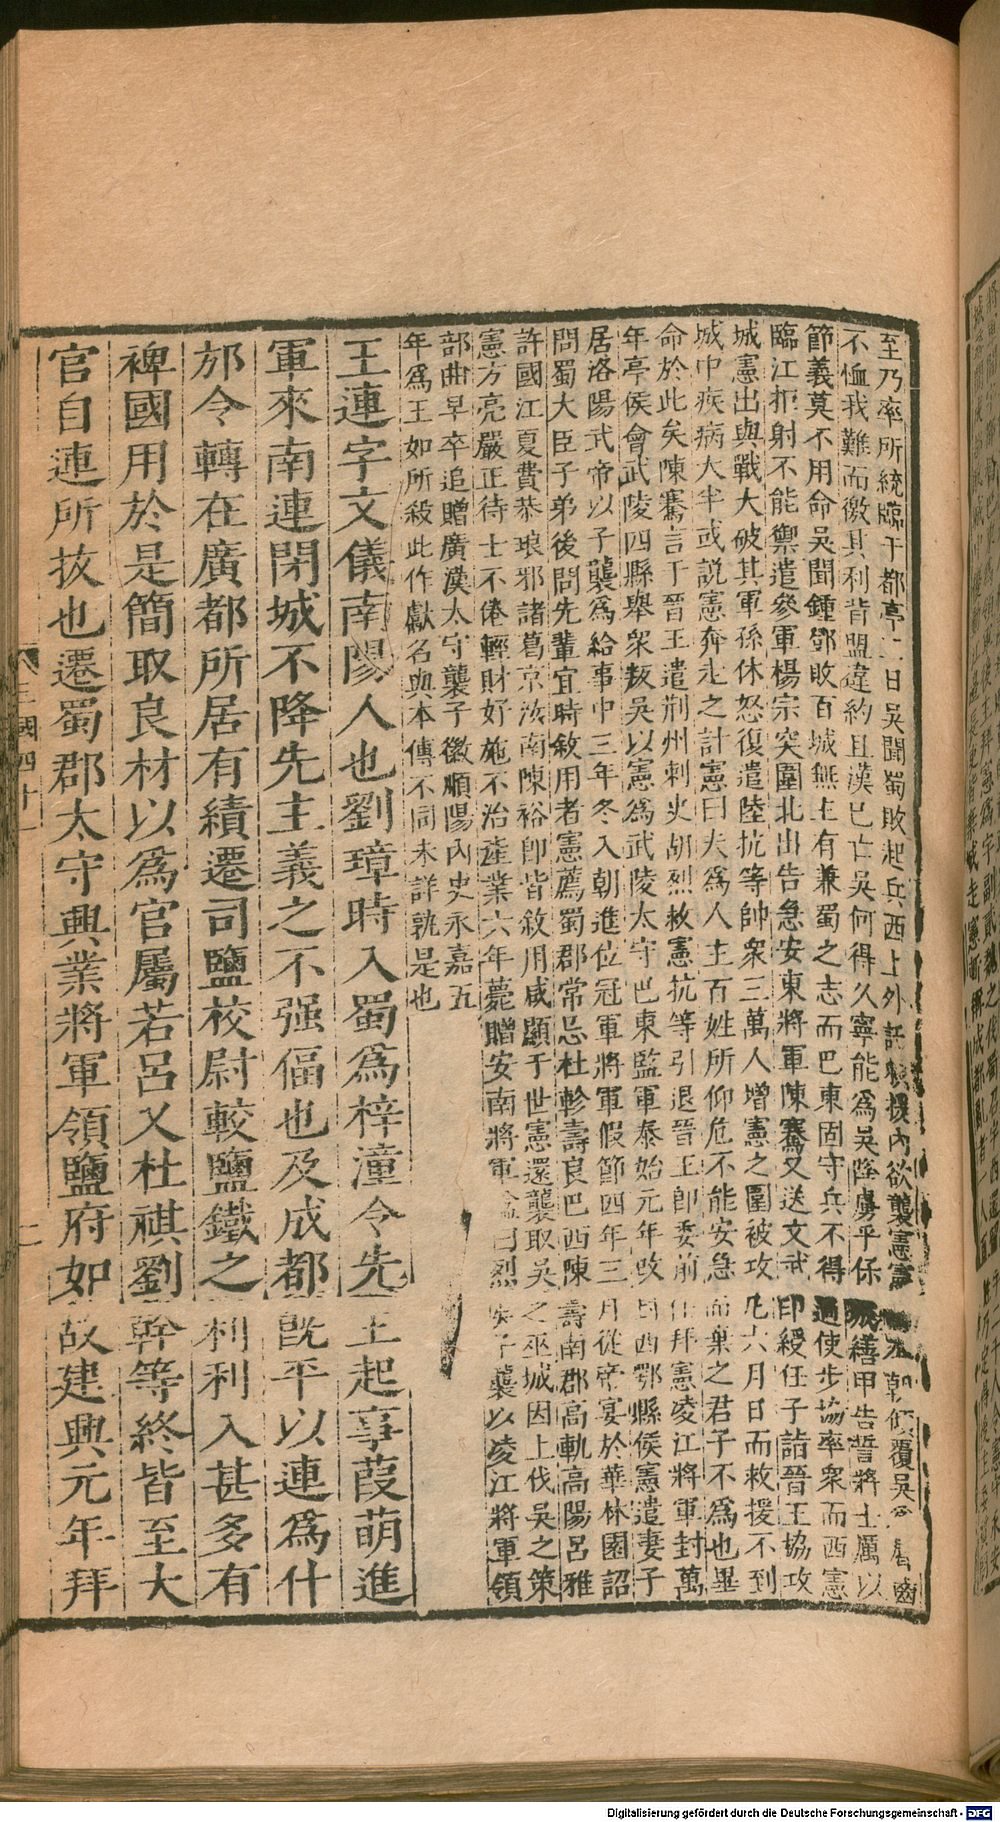 至乃率所統臨于都亭三日吳聞蜀敗起兵西上外託救援內欲襲憲憲本朝傾覆吳為脣齒
不恤我難而徼其利背盟違約且漢已亡吳何得久寧能為吳降虜乎保城繕甲告誓將士厲以
節義莫不用命吳聞鍾鄧敗百城無主有兼蜀之志而巴東固守兵不得過使步協率衆而西憲
臨江拒射不能禦遣參軍楊宗突圍北出告急安東將軍陳騫又送文武印綬任子詣晉王協攻
城憲出與戰大破其軍孫休怒復遣陸抗等帥衆三萬人增憲之圍被攻凡六月日而救援不到
城中疾病大半或說憲奔走之計憲曰夫為人主百姓所仰危不能安急而棄之君子不為也畢
命於此矣陳騫言于晉王遣荆州刺史胡烈救憲抗等引退晉王即委前任拜憲凌江將軍封萬
年亭侯會武陵四縣舉衆叛吳以憲為武陵太守巴東監軍泰始元年改封西鄂縣侯憲遣妻子
居洛陽武帝以子襲為給事中三年冬入朝進位冠軍將軍假節四年三月從帝宴於華林園詔
問蜀大臣子弟後問先輩宜時敘用者憲薦蜀郡常忌杜軫壽良巴西陳壽南郡高軌高陽呂雅
許國江夏費恭琅邪諸葛京汝南陳裕即皆敘用咸顯于世憲還襲取吳之巫城因上伐吳之策
憲方亮嚴正待士不倦輕財好施不治產業六年薨贈安南將軍謚曰烈侯子襲以凌江將軍領
部曲早卒追贈廣漢太守襲子徽順陽內史永嘉五
年為王如所殺此作獻名與本傳不同未詳孰是也
王連字文儀南陽人也劉璋時入蜀為梓潼令先主起事葭萌進
軍來南連閉城不降先主義之不强偪也及成都既平以連為什
邡令轉在廣都所居有績遷司鹽校尉較鹽鐵之利利入甚多有
裨國用於是簡取良材以為官屬若呂乂杜祺劉幹等終皆至大
官自連所拔也遷蜀郡太守興業將軍領鹽府如故建興元年拜
三國四十一
Digitalisierung gefördert durch die Deutsche Forschungsgemeinschaft - DFG